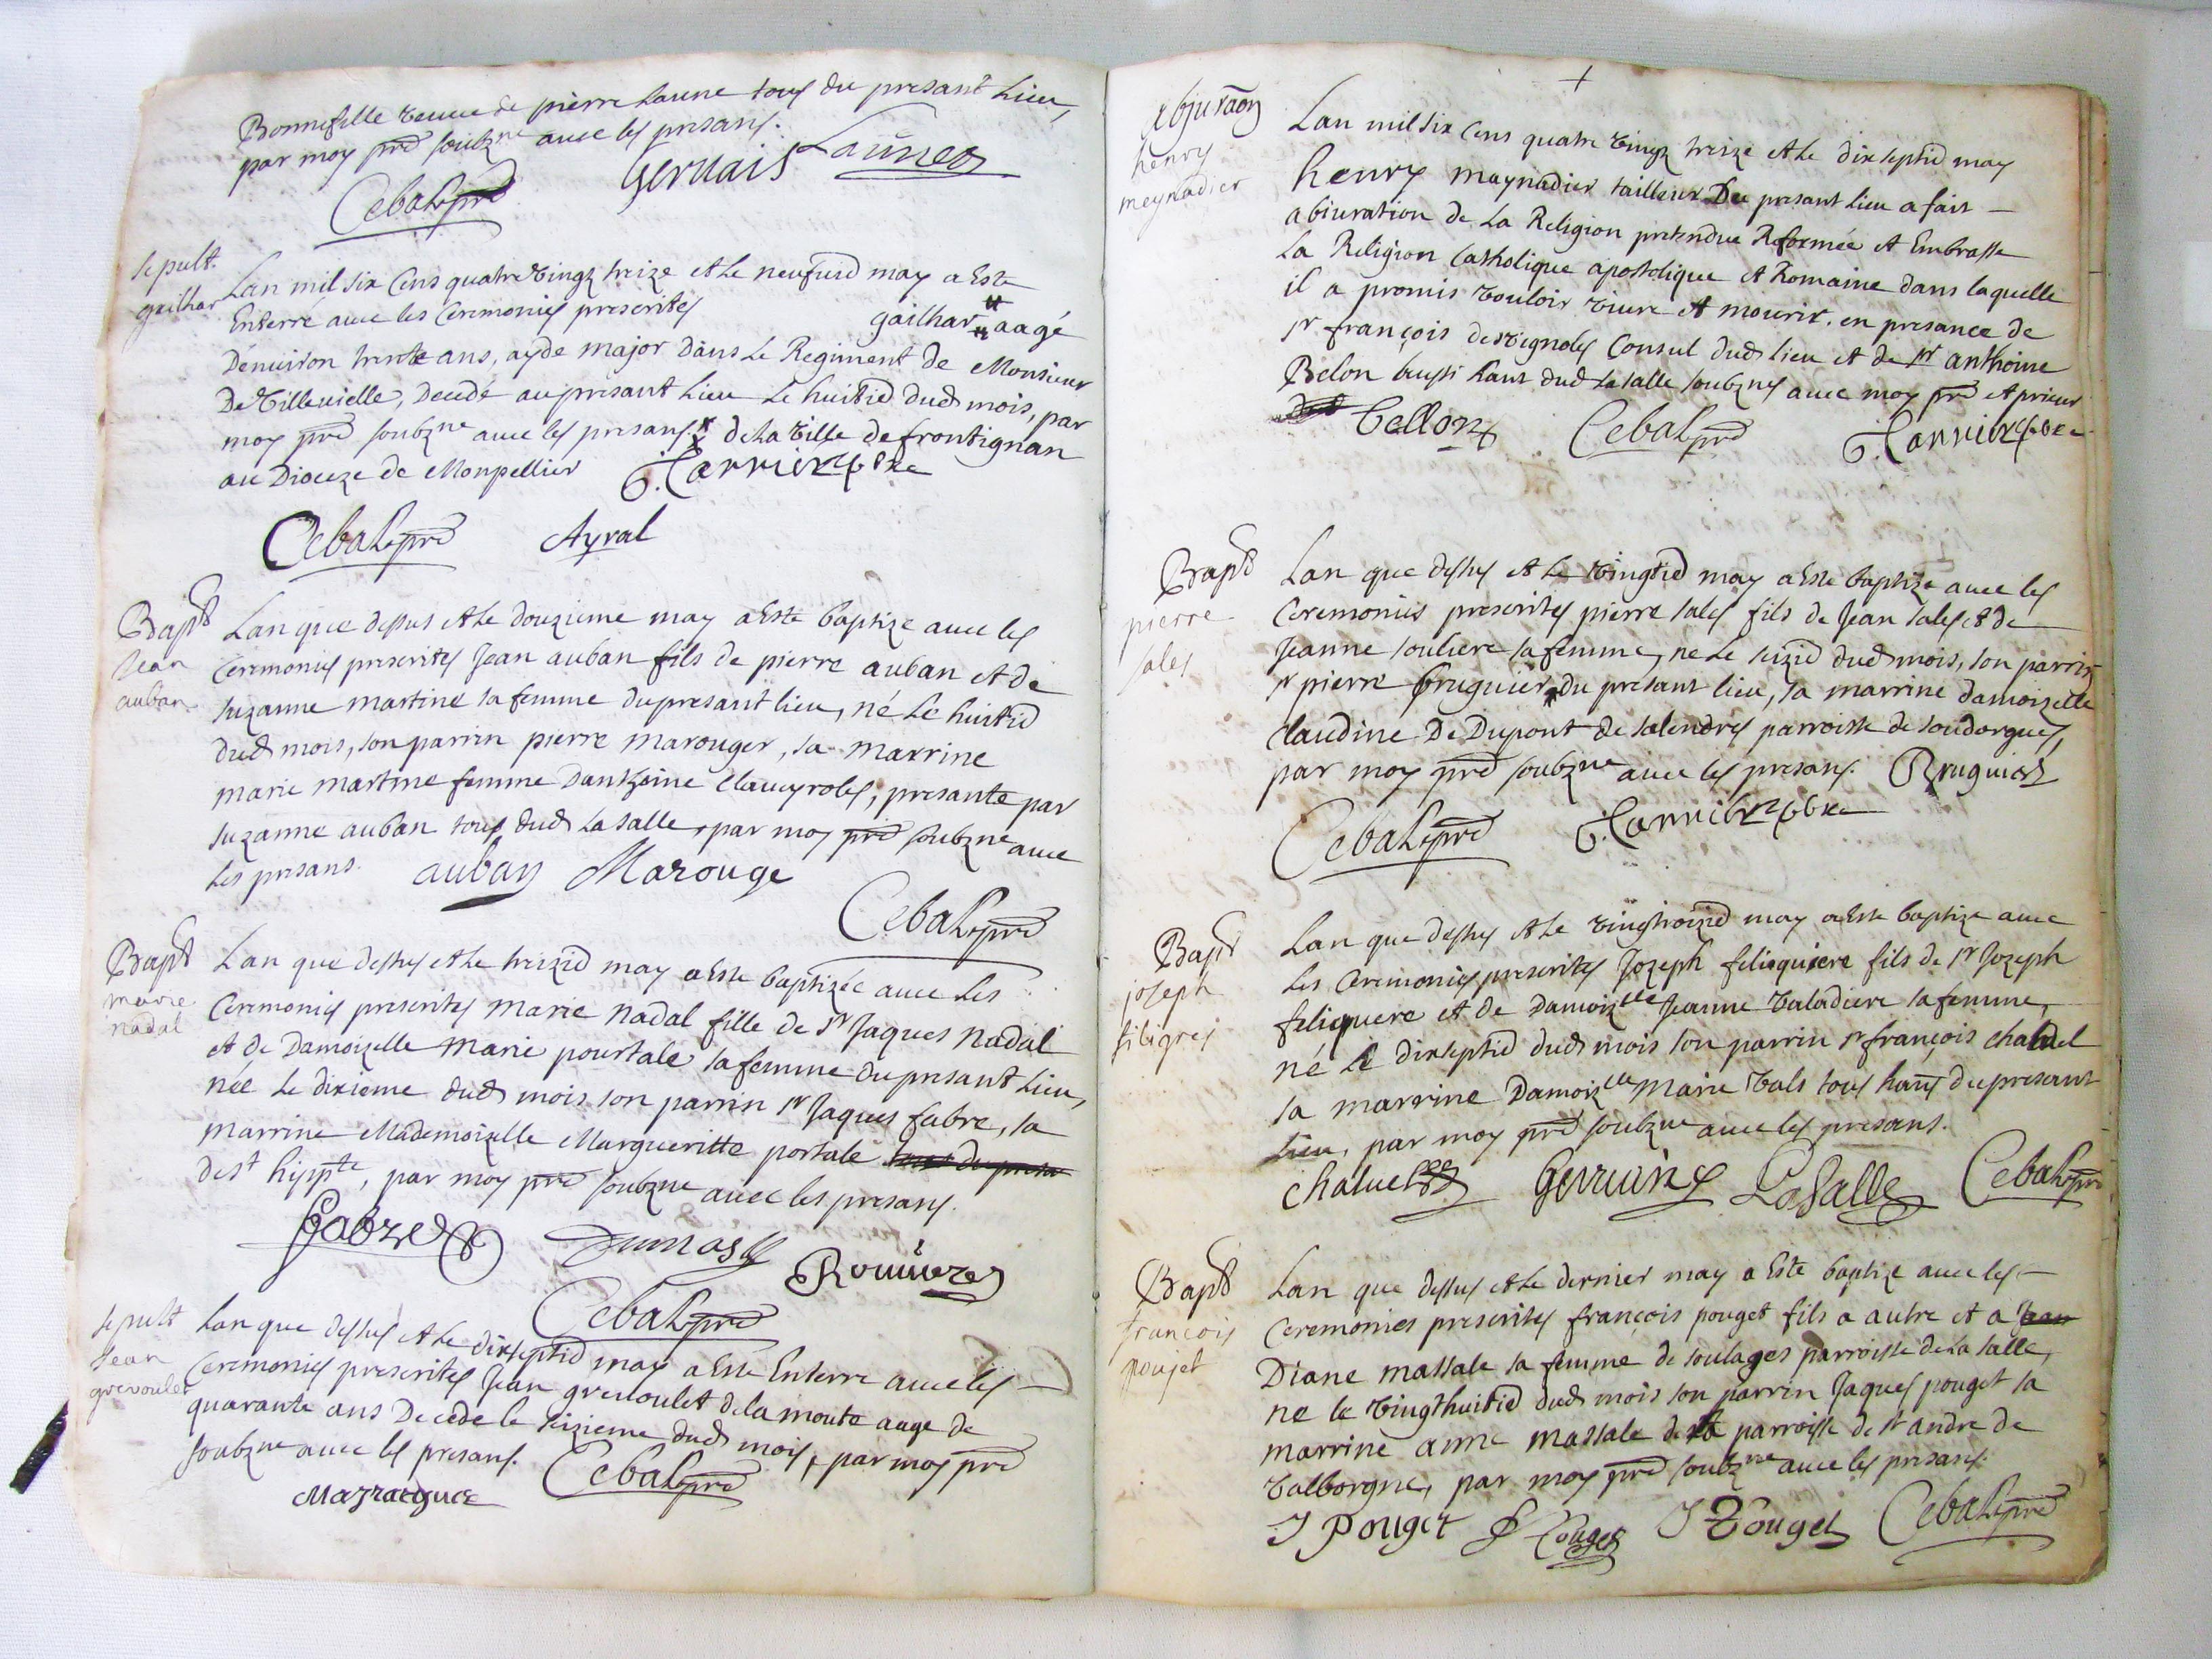 Bonnefille veuve de pierre Laune tous du presant Lieu,
par moy pre soubzne avec les presans.
Cebal pre Gervais Launes
sepult.
gailhar
Lan mil six Cens quatre vingz treize et le neufvie may a Este
Enterré avec les Ceremonies prescrites gailhar aagé
Denviron trente ans, ayde major dans Le Regiment de Monsieur
De Villevielle, Decedé au presant Lieu Le huitie dud mois, par
moy pre soubzne avec les presans. de la ville de frontignan
au Dioceze de Monpellier
Cebal pre Ayral
Bapt
Jean
auban
Lan que dessus et le douzieme may a este baptize avec les
Ceremonies prescrites Jean auban fils de pierre auban et de
suzanne martine sa femme du presant lieu, né Le huitie
dud mois, son parrin pierre marouger, sa marrine
marie martine femme Danthoine Claveyroles, presante par
suzanne auban tous dud La salle, par moy pre soubzne avec
Les presans. auban Marouge
Cebal pre
Bapt
marie
nadal
Lan que dessus et le treizie may a este baptizée avec Les
Ceremonies prescrites marie nadal fille de sr Jaques nadal
et de Damoizelle marie pourtale sa femme du presant Lieu,
née Le dixieme dud mois son parrin sr Jaques fabre, sa
marrine Mademoizelle Margueritte portale tous du presa
de st hippte, par moy pre soubzne avec les presans.
Fabre Dumas
Cebal pre
sepult
Jean
grevoulet
Lan que dessus et le dixseptie may a este Enterre avec les
Ceremonies prescrites Jean grevoulet de la moute aage de
quarante ans Decede le seizieme dud mois, par moy pre
soubzne avec les presans. Cebal pre
Mazrargues
abjuraon
henry
meynadier
Lan mil six Cens quatre vingz treize et le dixseptie may
henry maynadier tailleur Du presant lieu a fait
abiuration de La Religion pretendue Reformée et Embrasse
La Religion Catholique apostolique et Romaine dans laquelle
il a promis vouloir vivre et mourir. en presance de
sr françois desvignoles Consul dud lieu et de sr anthoine
Belon aussi hant dud La salle soubznes avec moy pre et prieur
Bellon Cebal pre
Bapt
pierre
sales
Lan que dessus et Le vingtie may a este baptize avec les
Ceremonies prescrites pierre sales fils de Jean sales et de
Jeanne souliere sa femme, ne Le seizie dud mois, son parrin
sr pierre bruguier du presant lieu, sa marrine damoizelle
Claudine De Dupont de salendres parroisse de soudorgues,
par moy pre soubzne avec les presans. Bruguier
Cebal pre
Bapt
joseph
filigrej
Lan que dessus et Le vingttroizie may a este baptize avec
Les Ceremonies prescrites Jozeph feliquiere fils de sr Jozeph
feliquiere et de Damoizlle Jeanne Valadiere sa femme,
né Le dixseptie dud mois son parrin sr françois chabal
sa marrine Damoizlle marie Vals tous hans du presant
Lieu, par moy pre soubzne avec les presans.
LaSalle Cebal pre
Bapt
françois
poujet
Lan que dessus et Le dernier may a Este baptize avec les
Ceremonies prescrites françois pouget fils a autre et a Jean
Diane massale sa femme de soulages parroisse de La salle,
ne le vingthuitie dud mois son parrin Jaques pouget sa
marrine anne massale de la parroisse de st andre de
Valborgne, par moy pre soubzne avec les presans.
J Pouget Pouget J Pouget Cebal pre